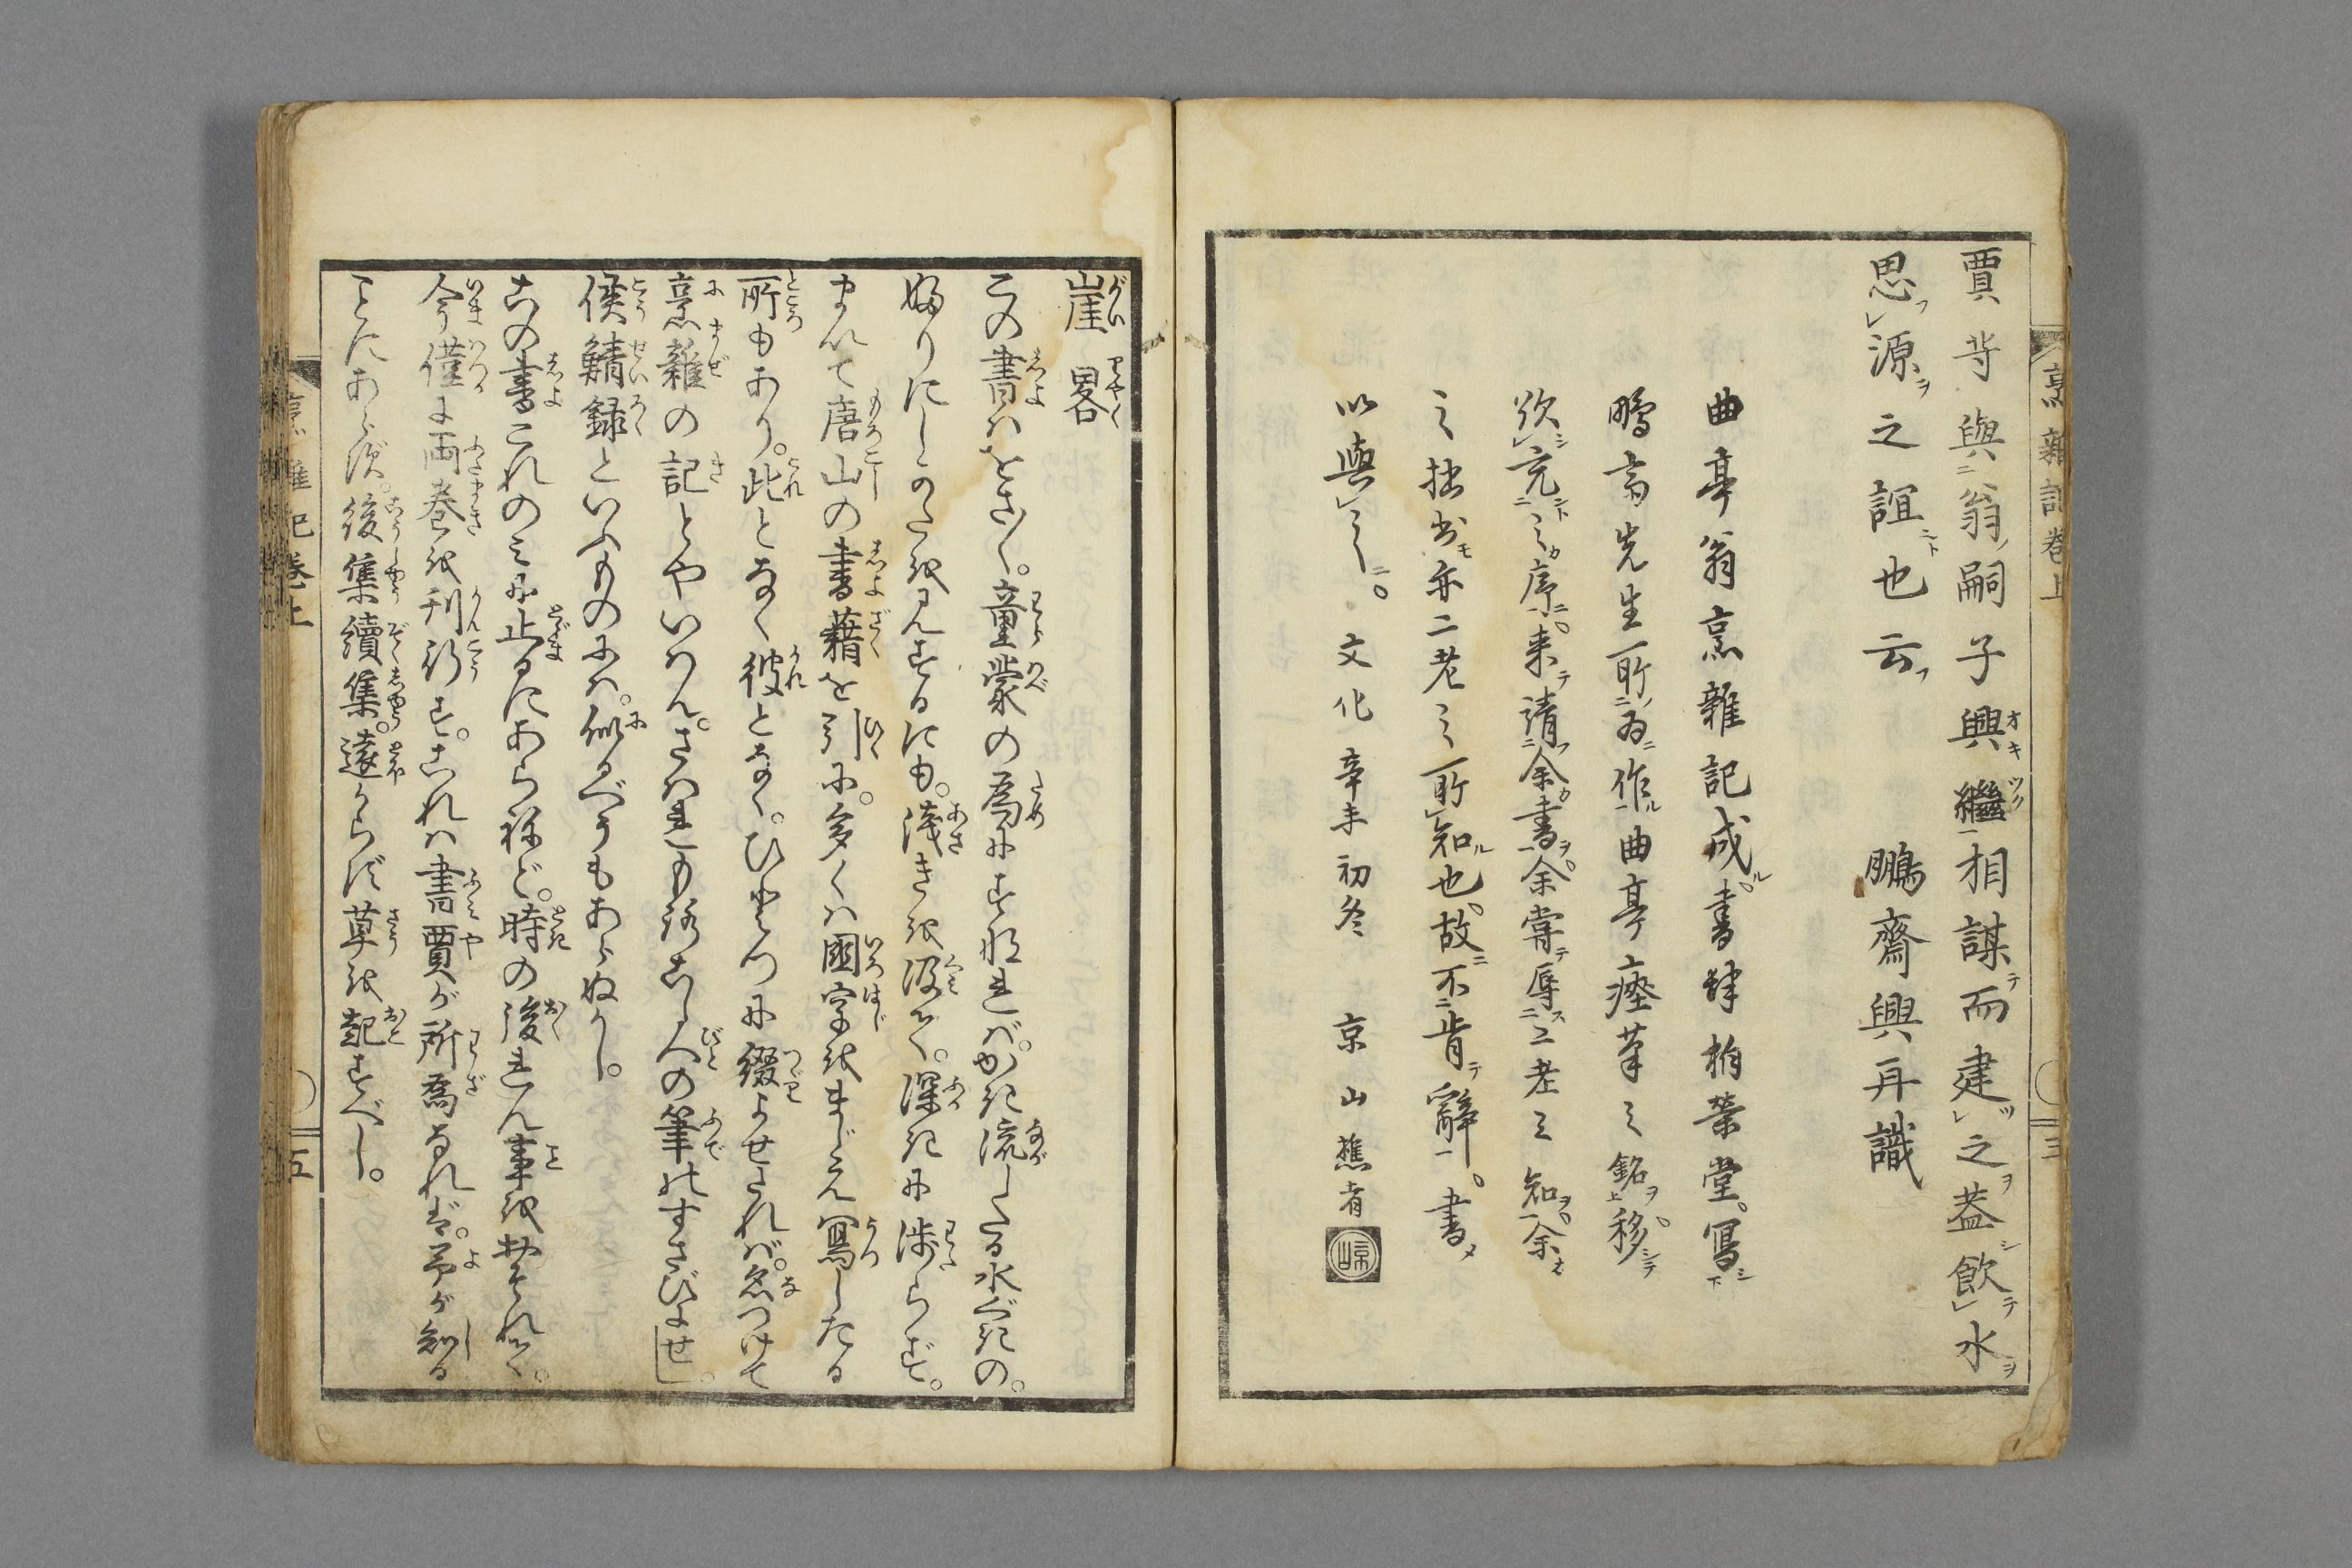 烹雜記卷上
三
賈 與翁嗣子興繼相謀而建之蓋飲水
思源之誼也云 鵬齋興再識
曲亭翁烹雜記成書肆栢榮堂寫
鵬齋先生所為作曲亭瘞筆之銘移
欲充之序来請余書余嘗辱二老之知余
之拙書亦二老之所知也故不肯辭書
以與之 文化辛未初冬 京山樵者
崖畧
この書ハをさ〳〵童蒙の為にすなれバかき流したる水ぐきの
婦りにしかた
まれて唐山の書藉を引に多くハ國字をまじえ寫したる
所もあり此となく彼となくひとつに綴よせされバ名つけて
烹雜の記とやいはんさハれもろこし人の筆のすさびよせし
侯鯖録といふものにハ似るべうもあらぬかし
この書これのミに止るにあらねど時の後れん事をおそれて
今僅に両巻を刊行すこれハ書賈が所爲なれバ予が知る
ことにあらず後集續集遠からず草を起すべし
烹雜記卷上
五